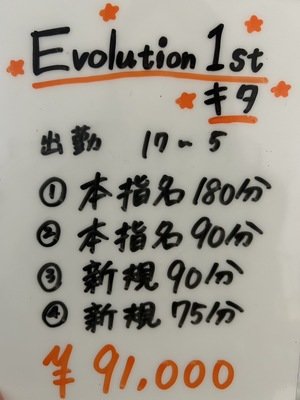 Evolution 1st
キタ
出勤 17～5
① 本指名 180分
② 本指名 90分
③ 新規 90分
④ 新規 75分
¥91,000